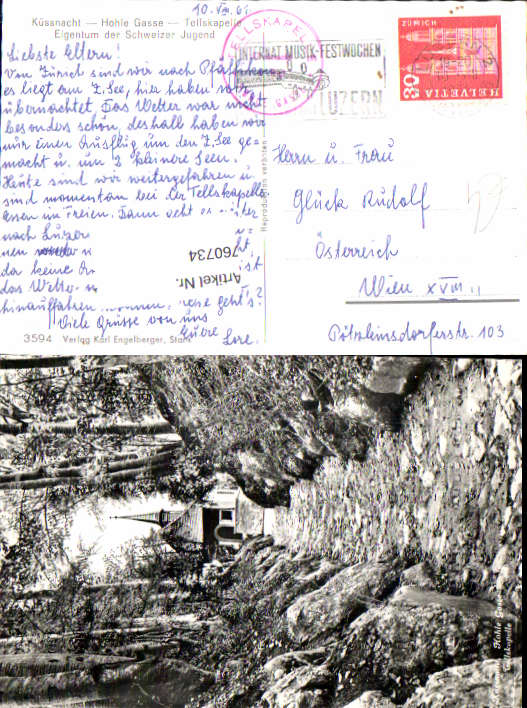 10. VIII. 61
Küssnacht — Hohle Gasse — Tellskapelle
Eigentum der Schweizer Jugend
Liebste Eltern!
Von Zürich sind wir nach Pfäffikon
es liegt am Z. See, hier haben wir
übernachtet. Das Wetter war nicht
besonders schön, deshalb haben wir
nur einen Ausflug um den Z. See ge-
macht u. um 2 kleinere Seen.
Heute sind wir weitergefahren u.
sind momentan bei der Tellskapelle
essen im Freien. Dann geht es weiter
nach Luzer
nen
da keine
das Wetter
hinauffahren können, wie geht's?
Viele Grüsse von uns
Eure
Lore.
3594 Verlag Karl Engelberger, Stans
Reproduktion verboten
Artikel Nr.
760734
TELLSKAPELLE
INTERNAT. MUSIK-FESTWOCHEN
LUZERN
ZÜRICH
30
HELVETIA
Herrn u. Frau
Glück Rudolf
Österreich
Wien XVIII
Pötzleinsdorferstr. 103
Hohle Gasse
Tellskapelle